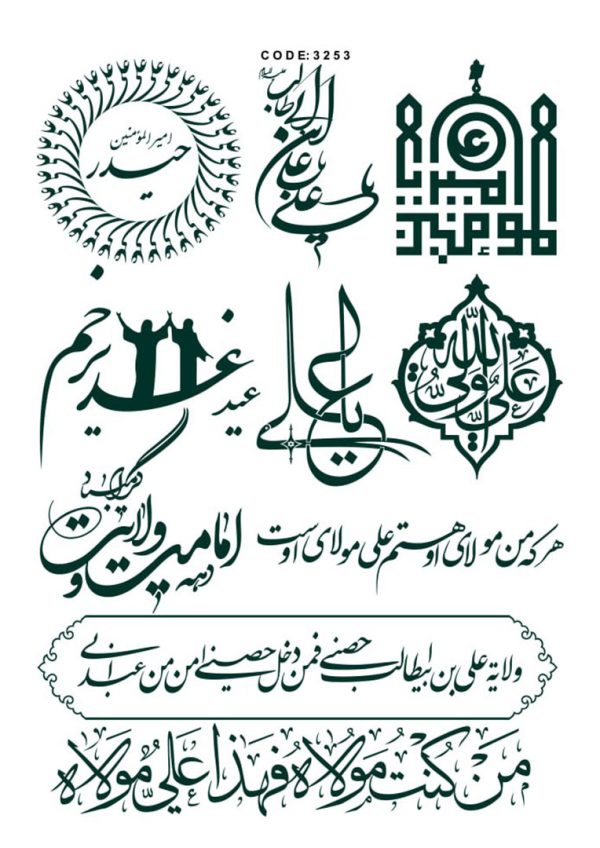 CODE:3253
امیرالمؤمنین
حیدر
علی بن ابیطالب
علیه السلام
یا امیر
المومنین
عید غدیر خم
یا علی
علی ولی الله
دهه امامت و ولایت
گرامیباد
هر که من مولای او هستم علی مولای اوست
ولایة علی بن ابیطالب حصنی فمن دخل حصنی امن من عذابی
مَنْ کُنْتُ مَوْلاهُ فَهَذا عَلیٌّ مَوْلاهُ